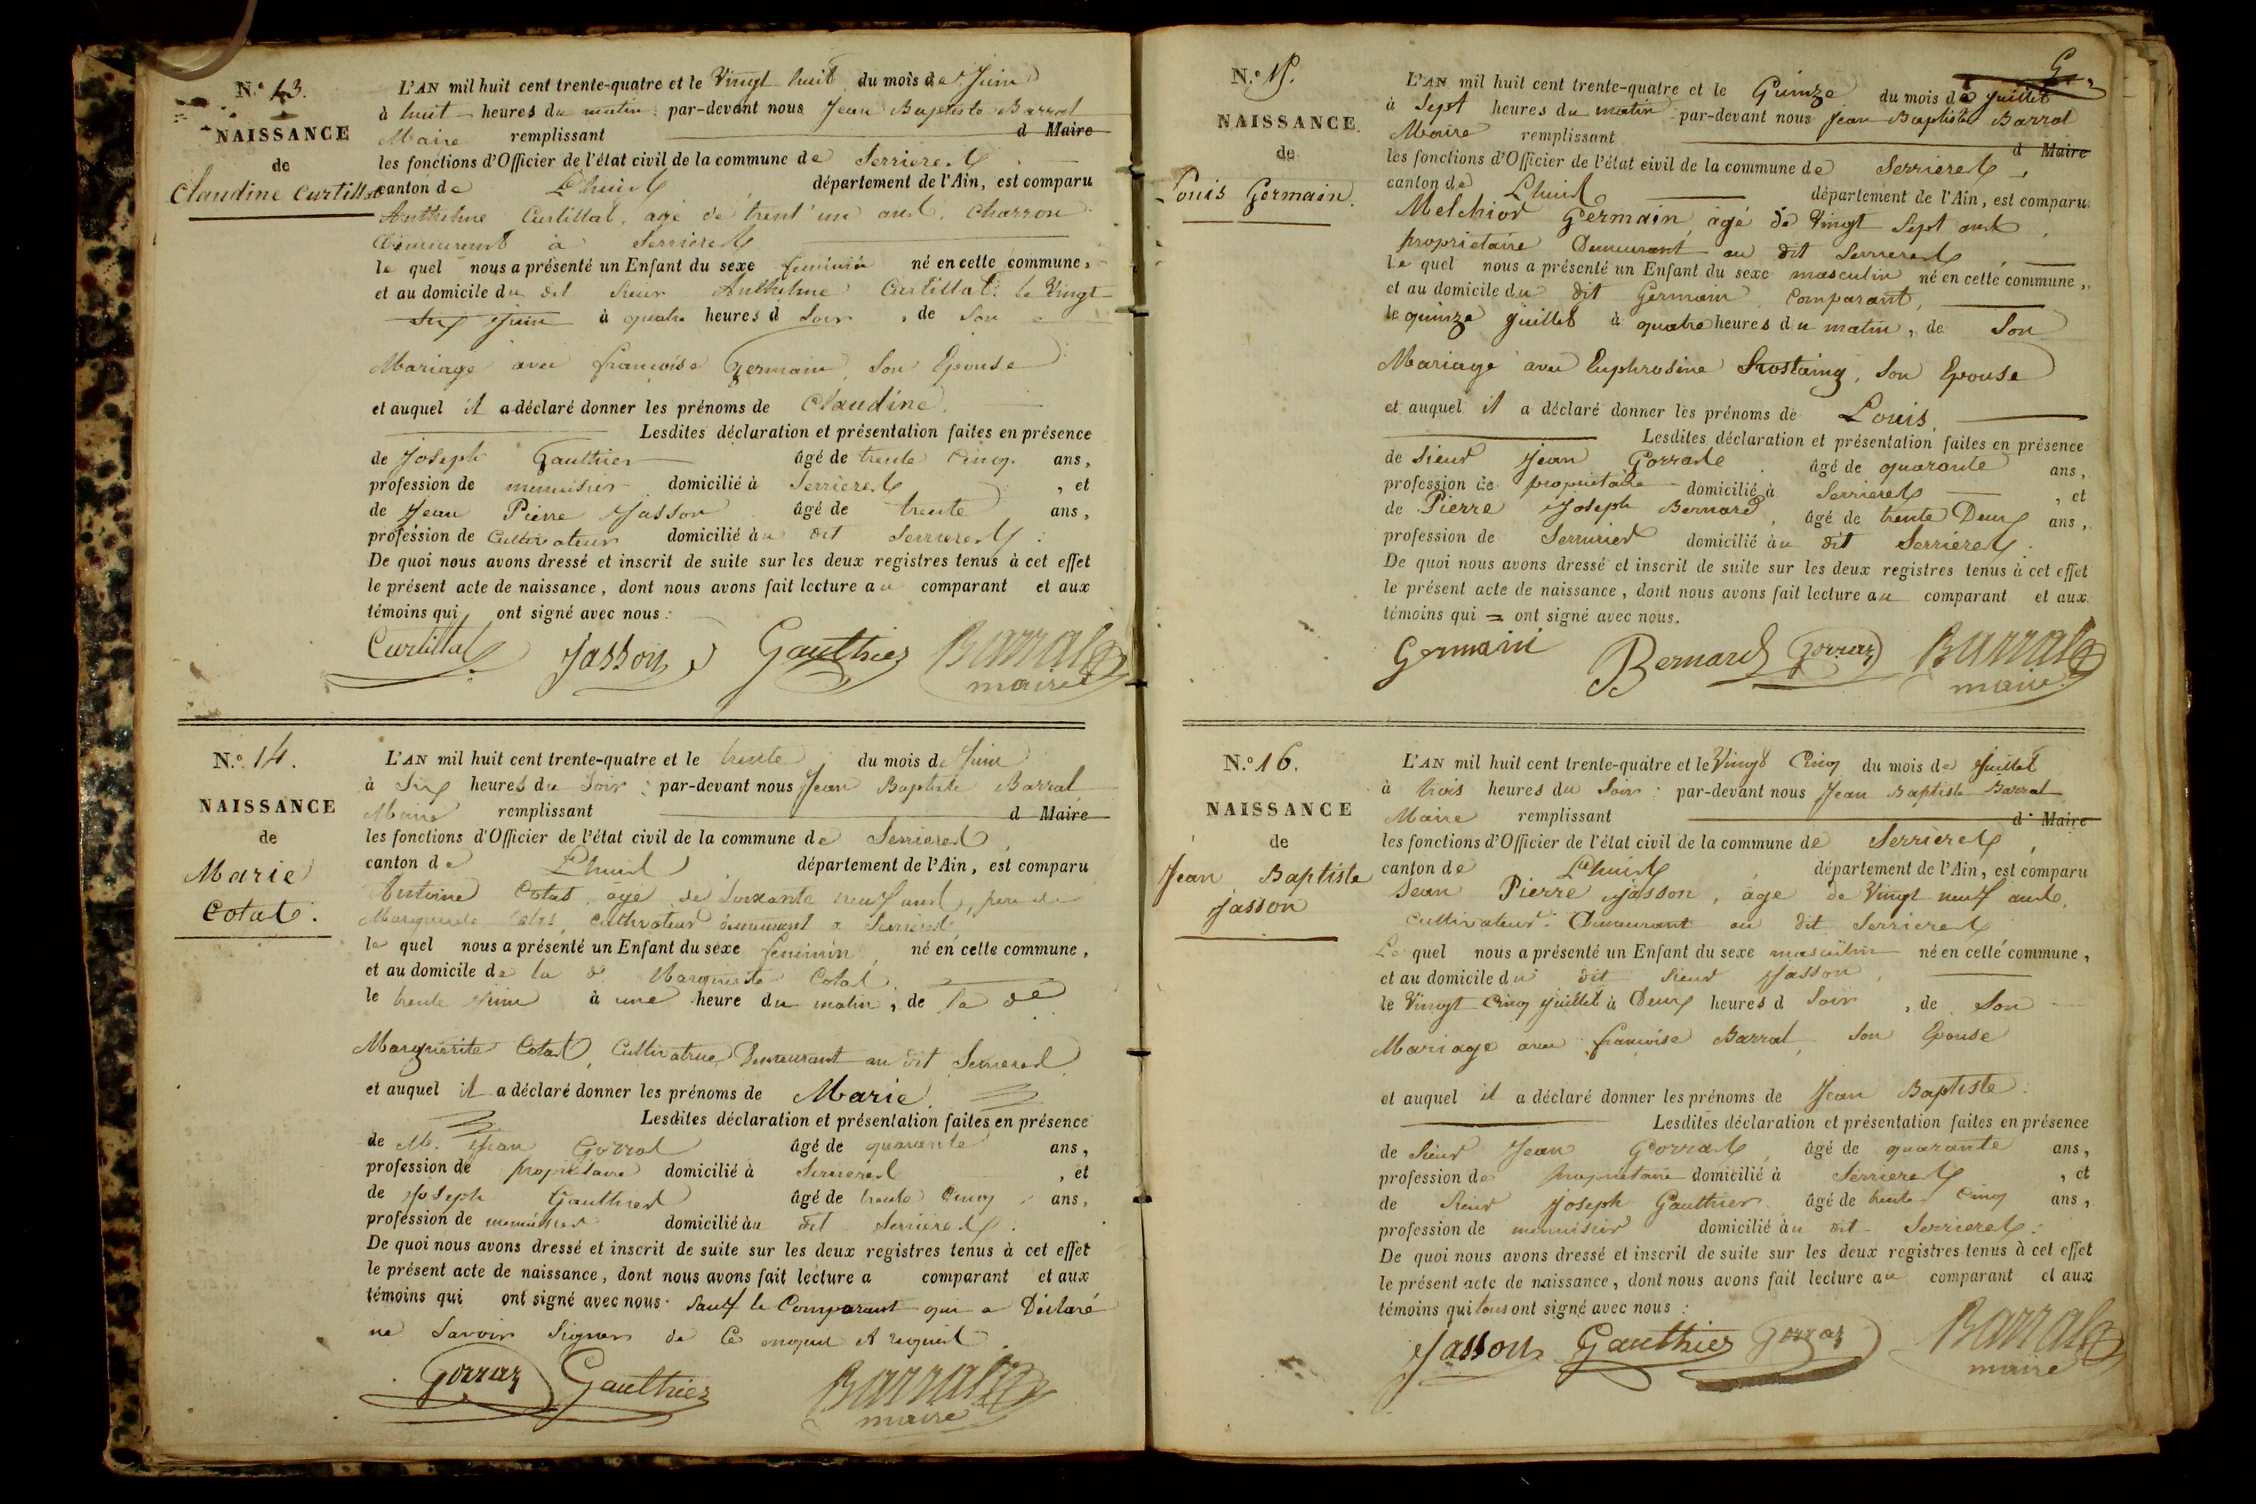 N.° 13.
NAISSANCE
de
Claudine Curtillat
L'AN mil huit cent trente-quatre et le Vingt huit du mois de Juin
à huit heures du matin : par-devant nous Jean Baptiste Barral
Maire remplissant d Maire
les fonctions d'Officier de l'état civil de la commune de Serrieres
canton de Lhuis département de l'Ain, est comparu
Anthelme Curtillat, agé de trent'un ans, Charron
demeurant à Serrieres
le quel nous a présenté un Enfant du sexe feminin né en cette commune,
et au domicile du dit sieur Anthelme Curtillat. le Vingt
Six Juin à quatre heures d Soir , de Son
Mariage avec françoise Germain, Son Epouse
et auquel il a déclaré donner les prénoms de Claudine.
Lesdites déclaration et présentation faites en présence
de Joseph Gauthier âgé de trente Cinq ans,
profession de menuisier domicilié à Serrieres , et
de Jean Pierre Jasson âgé de trente ans,
profession de Cultivateur domicilié àu dit Serrieres :
De quoi nous avons dressé et inscrit de suite sur les deux registres tenus à cet effet
le présent acte de naissance, dont nous avons fait lecture au comparant et aux
témoins qui ont signé avec nous :
Curtillat Jasson Gauthier Barral
maire
N.° 14.
NAISSANCE
de
Marie
Cotat.
L'AN mil huit cent trente-quatre et le trente du mois de Juin
à Six heures du Soir : par-devant nous Jean Baptiste Barral
Maire remplissant d Maire
les fonctions d'Officier de l'état civil de la commune de Serrieres
canton de Lhuis département de l'Ain, est comparu
Antoine Cotat, agé de Soixante neuf ans, pere de
Marguerite Cotat, cultivateur demeurant a Serrieres,
le quel nous a présenté un Enfant du sexe feminin, né en cette commune,
et au domicile de la de Marguerite Cotat
le trente Juin à une heure du matin, de la de
Marguerite Cotat, Cultivatrice Demeurant au dit Serrieres
et auquel il a déclaré donner les prénoms de Marie.
Lesdites déclaration et présentation faites en présence
de M. Jean Gorrat âgé de quarante ans,
profession de propriétaire domicilié à Serrieres , et
de Joseph Gauthier âgé de trente Cinq ans,
profession de menuisier domicilié àu dit Serrieres.
De quoi nous avons dressé et inscrit de suite sur les deux registres tenus à cet effet
le présent acte de naissance, dont nous avons fait lecture a comparant et aux
témoins qui ont signé avec nous. Sauf le Comparant qui a Déclaré
ne Savoir Signer de Ce enquis et requis
Gorraz Gauthier Barral
maire
N.° 15.
NAISSANCE.
de
Louis Germain.
L'AN mil huit cent trente-quatre et le Quinze du mois de Juillet
à Sept heures du matin par-devant nous Jean Baptiste Barral
Maire remplissant d Maire
les fonctions d'Officier de l'état civil de la commune de Serrieres,
canton de Lhuis département de l'Ain, est comparu
Melchior Germain, agé de Vingt Sept ans,
propriétaire Demeurant au dit Serrieres,
le quel nous a présenté un Enfant du sexe masculin né en cette commune,
et au domicile du dit Germain Comparant,
le quinze Juillet à quatre heures du matin, de Son
Mariage avec Euphrosine Trostaing, Son Epouse
et auquel il a déclaré donner les prénoms de Louis.
Lesdites déclaration et présentation faites en présence
de Sieur Jean Gorrat âgé de quarante ans,
profession de propriétaire domicilié à Serrieres , et
de Pierre Joseph Bernard, âgé de trente Deux ans,
profession de Serrurier domicilié àu dit Serrieres.
De quoi nous avons dressé et inscrit de suite sur les deux registres tenus à cet effet
le présent acte de naissance, dont nous avons fait lecture au comparant et aux
témoins qui = ont signé avec nous.
Germain Bernard Gorraz Barral
maire
N.° 16.
NAISSANCE
de
Jean Baptiste
Jasson
L'AN mil huit cent trente-quatre et le Vingt Cinq du mois de Juillet
à trois heures du Soir : par-devant nous Jean Baptiste Barral
Maire remplissant d Maire
les fonctions d'Officier de l'état civil de la commune de Serrieres,
canton de Lhuis département de l'Ain, est comparu
Jean Pierre Jasson, âgé de Vingt neuf ans,
Cultivateur. Demeurant au dit Serrieres
Le quel nous a présenté un Enfant du sexe masculin né en cette commune,
et au domicile du dit Sieur Jasson,
le Vingt Cinq Juillet à Deux heures d Soir , de Son
Mariage avec françoise Barral, Son Epouse
et auquel il a déclaré donner les prénoms de Jean Baptiste.
Lesdites déclaration et présentation faites en présence
de Sieur Jean Gorrat, âgé de quarante ans,
profession de propriétaire domicilié à Serrieres , et
de Sieur Joseph Gauthier âgé de trente Cinq ans,
profession de menuisier domicilié àu dit Serrieres :
De quoi nous avons dressé et inscrit de suite sur les deux registres tenus à cet effet
le présent acte de naissance, dont nous avons fait lecture au comparant et aux
témoins qui tous ont signé avec nous :
Jasson Gauthier Gorraz Barral
maire